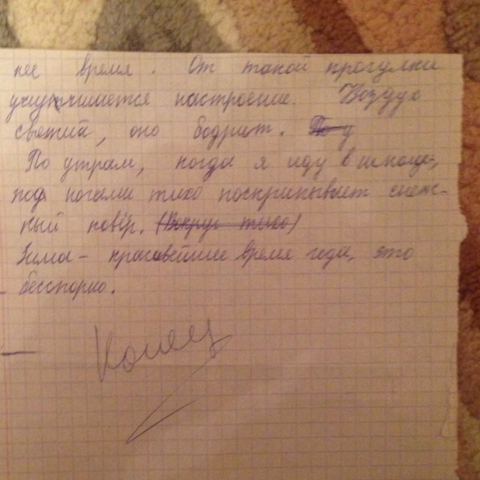 нее время. От такой прогулки
улучшается настроение. Воздух
свежий, оно бодрит. По у
По утрам, когда я иду в школу,
под ногами тихо поскрипывает снеж-
ный ковёр. (Вокруг тихо)
Зима - красивейшее время года, это
бесспорно.
Конец